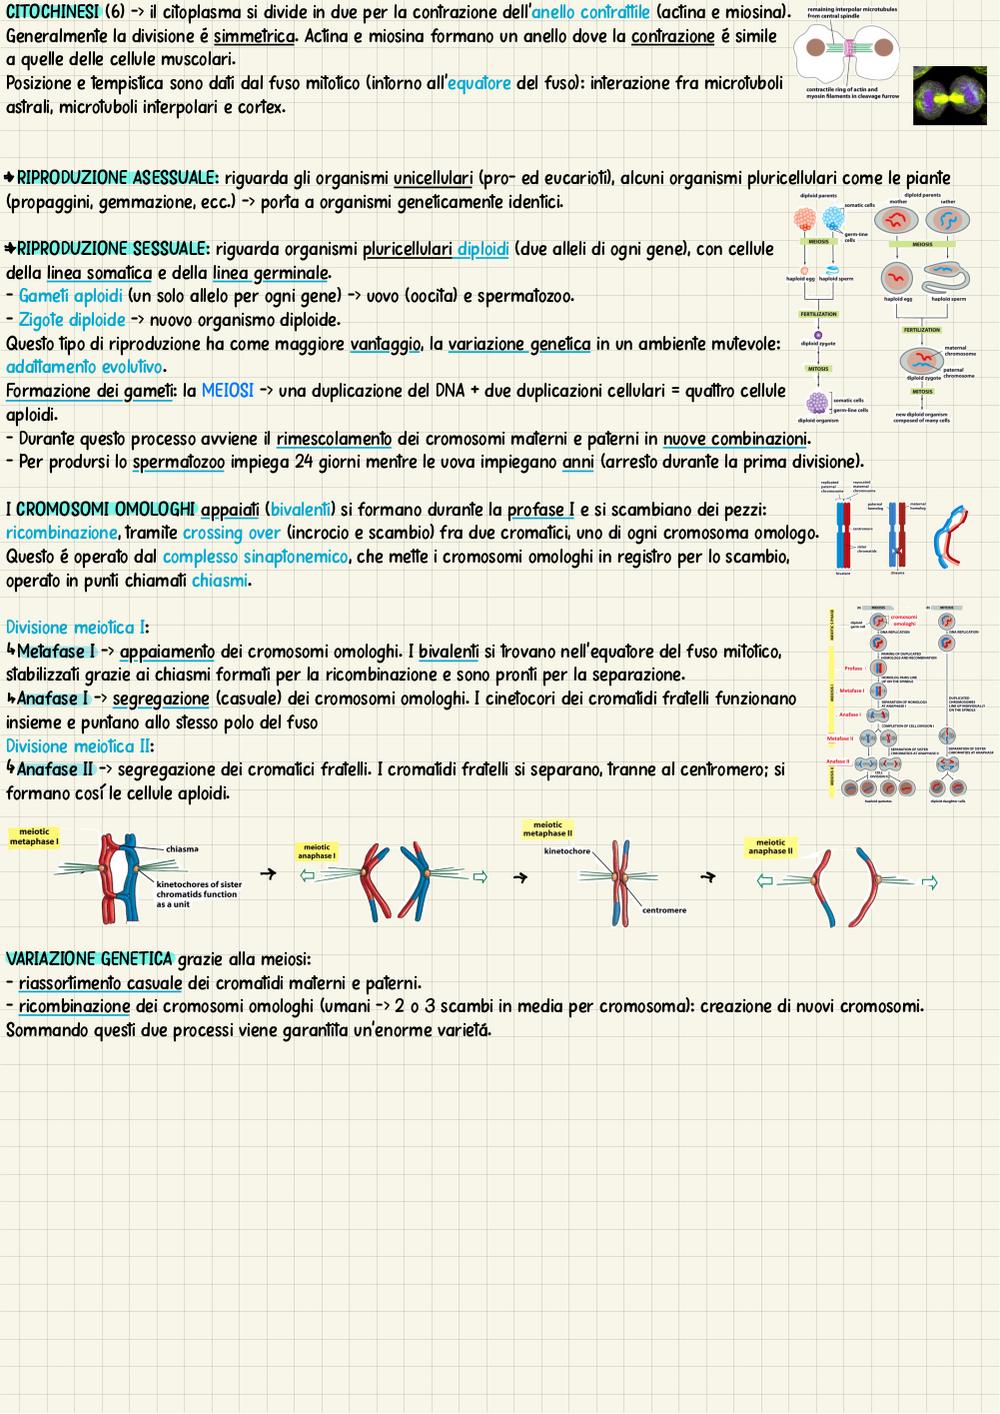 CITOCHINESI (6) -> il citoplasma si divide in due per la contrazione dell'anello contrattile (actina e miosina).
Generalmente la divisione é simmetrica. Actina e miosina formano un anello dove la contrazione é simile
a quelle delle cellule muscolari.
Posizione e tempistica sono dati dal fuso mitotico (intorno all'equatore del fuso): interazione fra microtuboli
astrali, microtuboli interpolari e cortex.
remaining interpolar microtubules
from central spindle
contractile ring of actin and
myosin filaments in cleavage furrow
RIPRODUZIONE ASESSUALE: riguarda gli organismi unicellulari (pro- ed eucarioti), alcuni organismi pluricellulari come le piante
(propaggini, gemmazione, ecc.) -> porta a organismi geneticamente identici.
RIPRODUZIONE SESSUALE: riguarda organismi pluricellulari diploidi (due alleli di ogni gene), con cellule
della linea somatica e della linea germinale.
- Gameti aploidi (un solo allelo per ogni gene) -> uovo (oocita) e spermatozoo.
- Zigote diploide -> nuovo organismo diploide.
Questo tipo di riproduzione ha come maggiore vantaggio, la variazione genetica in un ambiente mutevole:
adattamento evolutivo.
Formazione dei gameti: la MEIOSI -> una duplicazione del DNA + due duplicazioni cellulari = quattro cellule
aploidi.
- Durante questo processo avviene il rimescolamento dei cromosomi materni e paterni in nuove combinazioni.
- Per prodursi lo spermatozoo impiega 24 giorni mentre le uova impiegano anni (arresto durante la prima divisione).
diploid parents
somatic cells
germ-line
cells
MEIOSIS
haploid egg haploid sperm
FERTILIZATION
diploid zygote
MITOSIS
somatic cells
germ-line cells
diploid organism
diploid parents
mother
father
MEIOSIS
haploid egg
haploid sperm
FERTILIZATION
maternal
chromosome
paternal
chromosome
diploid zygote
MITOSIS
new diploid organism
composed of many cells
I CROMOSOMI OMOLOGHI appaiati (bivalenti) si formano durante la profase I e si scambiano dei pezzi:
ricombinazione, tramite crossing over (incrocio e scambio) fra due cromatici, uno di ogni cromosoma omologo.
Questo é operato dal complesso sinaptonemico, che mette i cromosomi omologhi in registro per lo scambio,
operato in punti chiamati chiasmi.
replicated
paternal
chromosome
replicated
maternal
chromosome
centromere
sister
chromatids
bivalent
paternal
homolog
maternal
homolog
chiasma
Divisione meiotica I:
Metafase I -> appaiamento dei cromosomi omologhi. I bivalenti si trovano nell'equatore del fuso mitotico,
stabilizzati grazie ai chiasmi formati per la ricombinazione e sono pronti per la separazione.
Anafase I -> segregazione (casuale) dei cromosomi omologhi. I cinetocori dei cromatidi fratelli funzionano
insieme e puntano allo stesso polo del fuso
Divisione meiotica II:
Anafase II -> segregazione dei cromatici fratelli. I cromatidi fratelli si separano, tranne al centromero; si
formano cosí le cellule aploidi.
MEIOSIS
MITOSIS
cromosomi
omologhi
DNA REPLICATION
DNA REPLICATION
PAIRING OF DUPLICATED
HOMOLOGS AND RECOMBINATION
Profase I
HOMOLOG PAIRS LINE
UP ON THE SPINDLE
Metafase I
SEPARATION OF HOMOLOGS
AT ANAPHASE I
Anafase I
DUPLICATED
CHROMOSOMES
LINE UP INDIVIDUALLY
ON THE SPINDLE
COMPLETION OF CELL DIVISION I
Metafase II
SEPARATION OF SISTER
CHROMATIDS AT ANAPHASE II
SEPARATION OF SISTER
CHROMATIDS AT ANAPHASE
Anafase II
CELL
DIVISION II
haploid gametes
diploid daughter cells
meiotic
metaphase I
chiasma
kinetochores of sister
chromatids function
as a unit
meiotic
anaphase I
meiotic
metaphase II
kinetochore
centromere
meiotic
anaphase II
VARIAZIONE GENETICA grazie alla meiosi:
- riassortimento casuale dei cromatidi materni e paterni.
- ricombinazione dei cromosomi omologhi (umani -> 2 o 3 scambi in media per cromosoma): creazione di nuovi cromosomi.
Sommando questi due processi viene garantita un'enorme varietá.